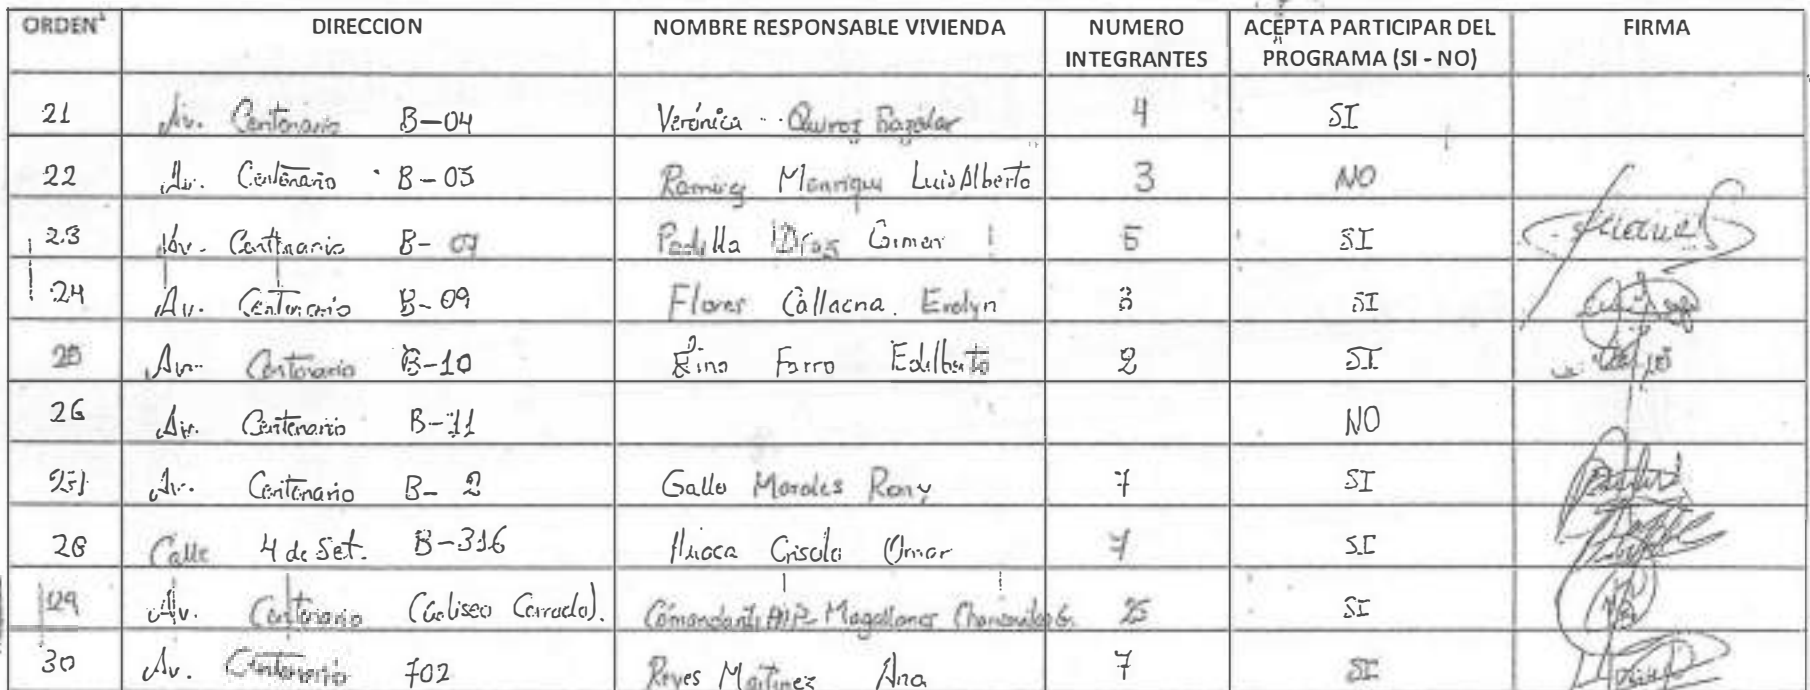 ORDEN DIRECCION NOMBRE RESPONSABLE VIVIENDA NUMERO INTEGRANTES ACEPTA PARTICIPAR DEL PROGRAMA (SI - NO) FIRMA
21 Av. Centenario B-04 Verónica Quiroz 4 SI
22 Av. Centenario B-05 Ramirez Manrique Luis Alberto 3 NO
23 Av. Centenario B-07 Padilla Díaz 5 SI
24 Av. Centenario B-09 Flores Callacna Evelyn 3 SI
25 Av. Centenario B-10 Farro Edilberto 2 SI
26 Av. Centenario B-11 NO
Av. Centenario B-2 Gallo Morales Rony 7 SI
28 Calle 4 de Set. B-316 Omar 7 SI
29 Av. Centenario (Coliseo Cerrado). Magallanes 25 SI
30 Av. Centenario 702 Reyes Martinez Ana 7 SI